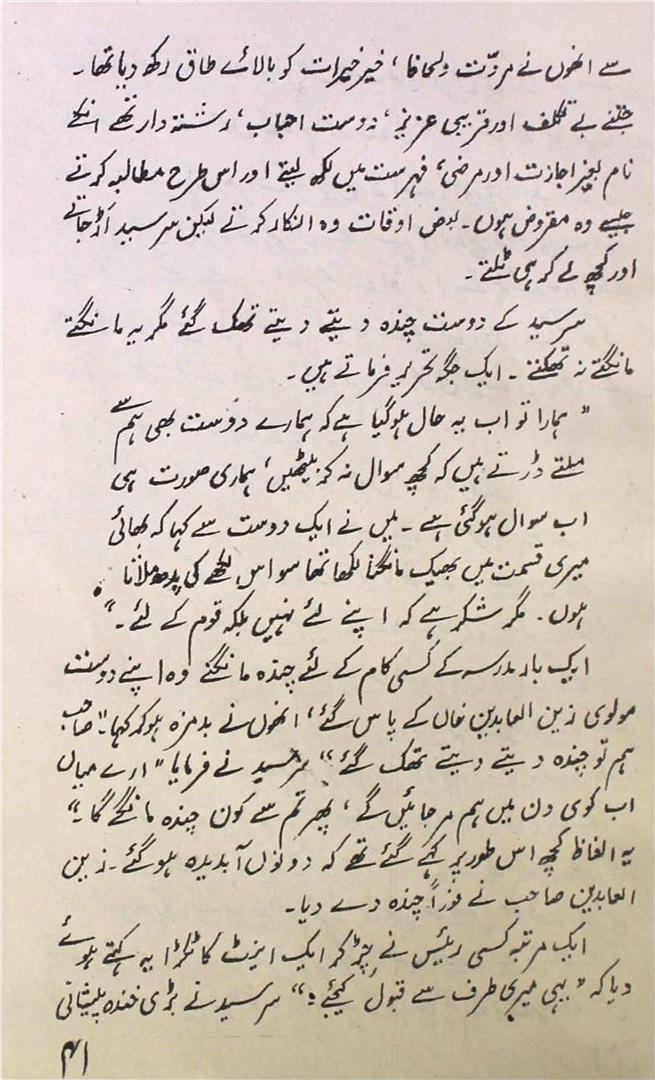 سے انھوں نے مروّت و لحاظ، خیر خیرات کو بالائے طاق رکھ دیا تھا۔
جتنے بے تکلف اور قریبی عزیز، دوست احباب، رشتہ دار تھے انکے
نام بغیر اجازت اور مرضی، فہرست میں لکھ لیتے اور اس طرح مطالبہ کرتے
جیسے وہ مقروض ہوں۔ بعض اوقات وہ انکار کرتے لیکن سر سید اَڑ جاتے
اور کچھ لے کر ہی ٹلتے۔
سر سید کے دوست چندہ دیتے دیتے تھک گئے مگر یہ مانگتے
مانگتے نہ تھکتے۔ ایک جگہ تحریر فرماتے ہیں۔
"ہمارا تو اب یہ حال ہو گیا ہے کہ ہمارے دوست بھی ہم سے
ملتے ڈرتے ہیں کہ کچھ سوال نہ کر بیٹھیں، ہماری صورت ہی
اب سوال ہو گئی ہے۔ میں نے ایک دوست سے کہا کہ بھائی
میری قسمت میں بھیک مانگنا لکھا تھا سو اس لکھے کی
ہوں۔ مگر شکر ہے کہ اپنے لئے نہیں بلکہ قوم کے لئے۔"
ایک بار مدرسہ کے کسی کام کے لئے چندہ مانگنے وہ اپنے دوست
مولوی زین العابدین خاں کے پاس گئے، انھوں نے بدمزہ ہو کر کہا۔ "صاحب
ہم تو چندہ دیتے دیتے تھک گئے" سر سید نے فرمایا "ارے میاں
اب کوی دن میں ہم مر جائیں گے، پھر تم سے کون چندہ مانگے گا۔"
یہ الفاظ کچھ اس طور پر کہے گئے تھے کہ دونوں آبدیدہ ہو گئے۔ زین
العابدین صاحب نے فوراً چندہ دے دیا۔
ایک مرتبہ کسی رئیس نے چڑ کر ایک اینٹ کا ٹکڑا یہ کہتے ہوئے
دیا کہ "یہی میری طرف سے قبول کیجئے۔" سر سید نے بڑی خندہ پیشانی
۴۱